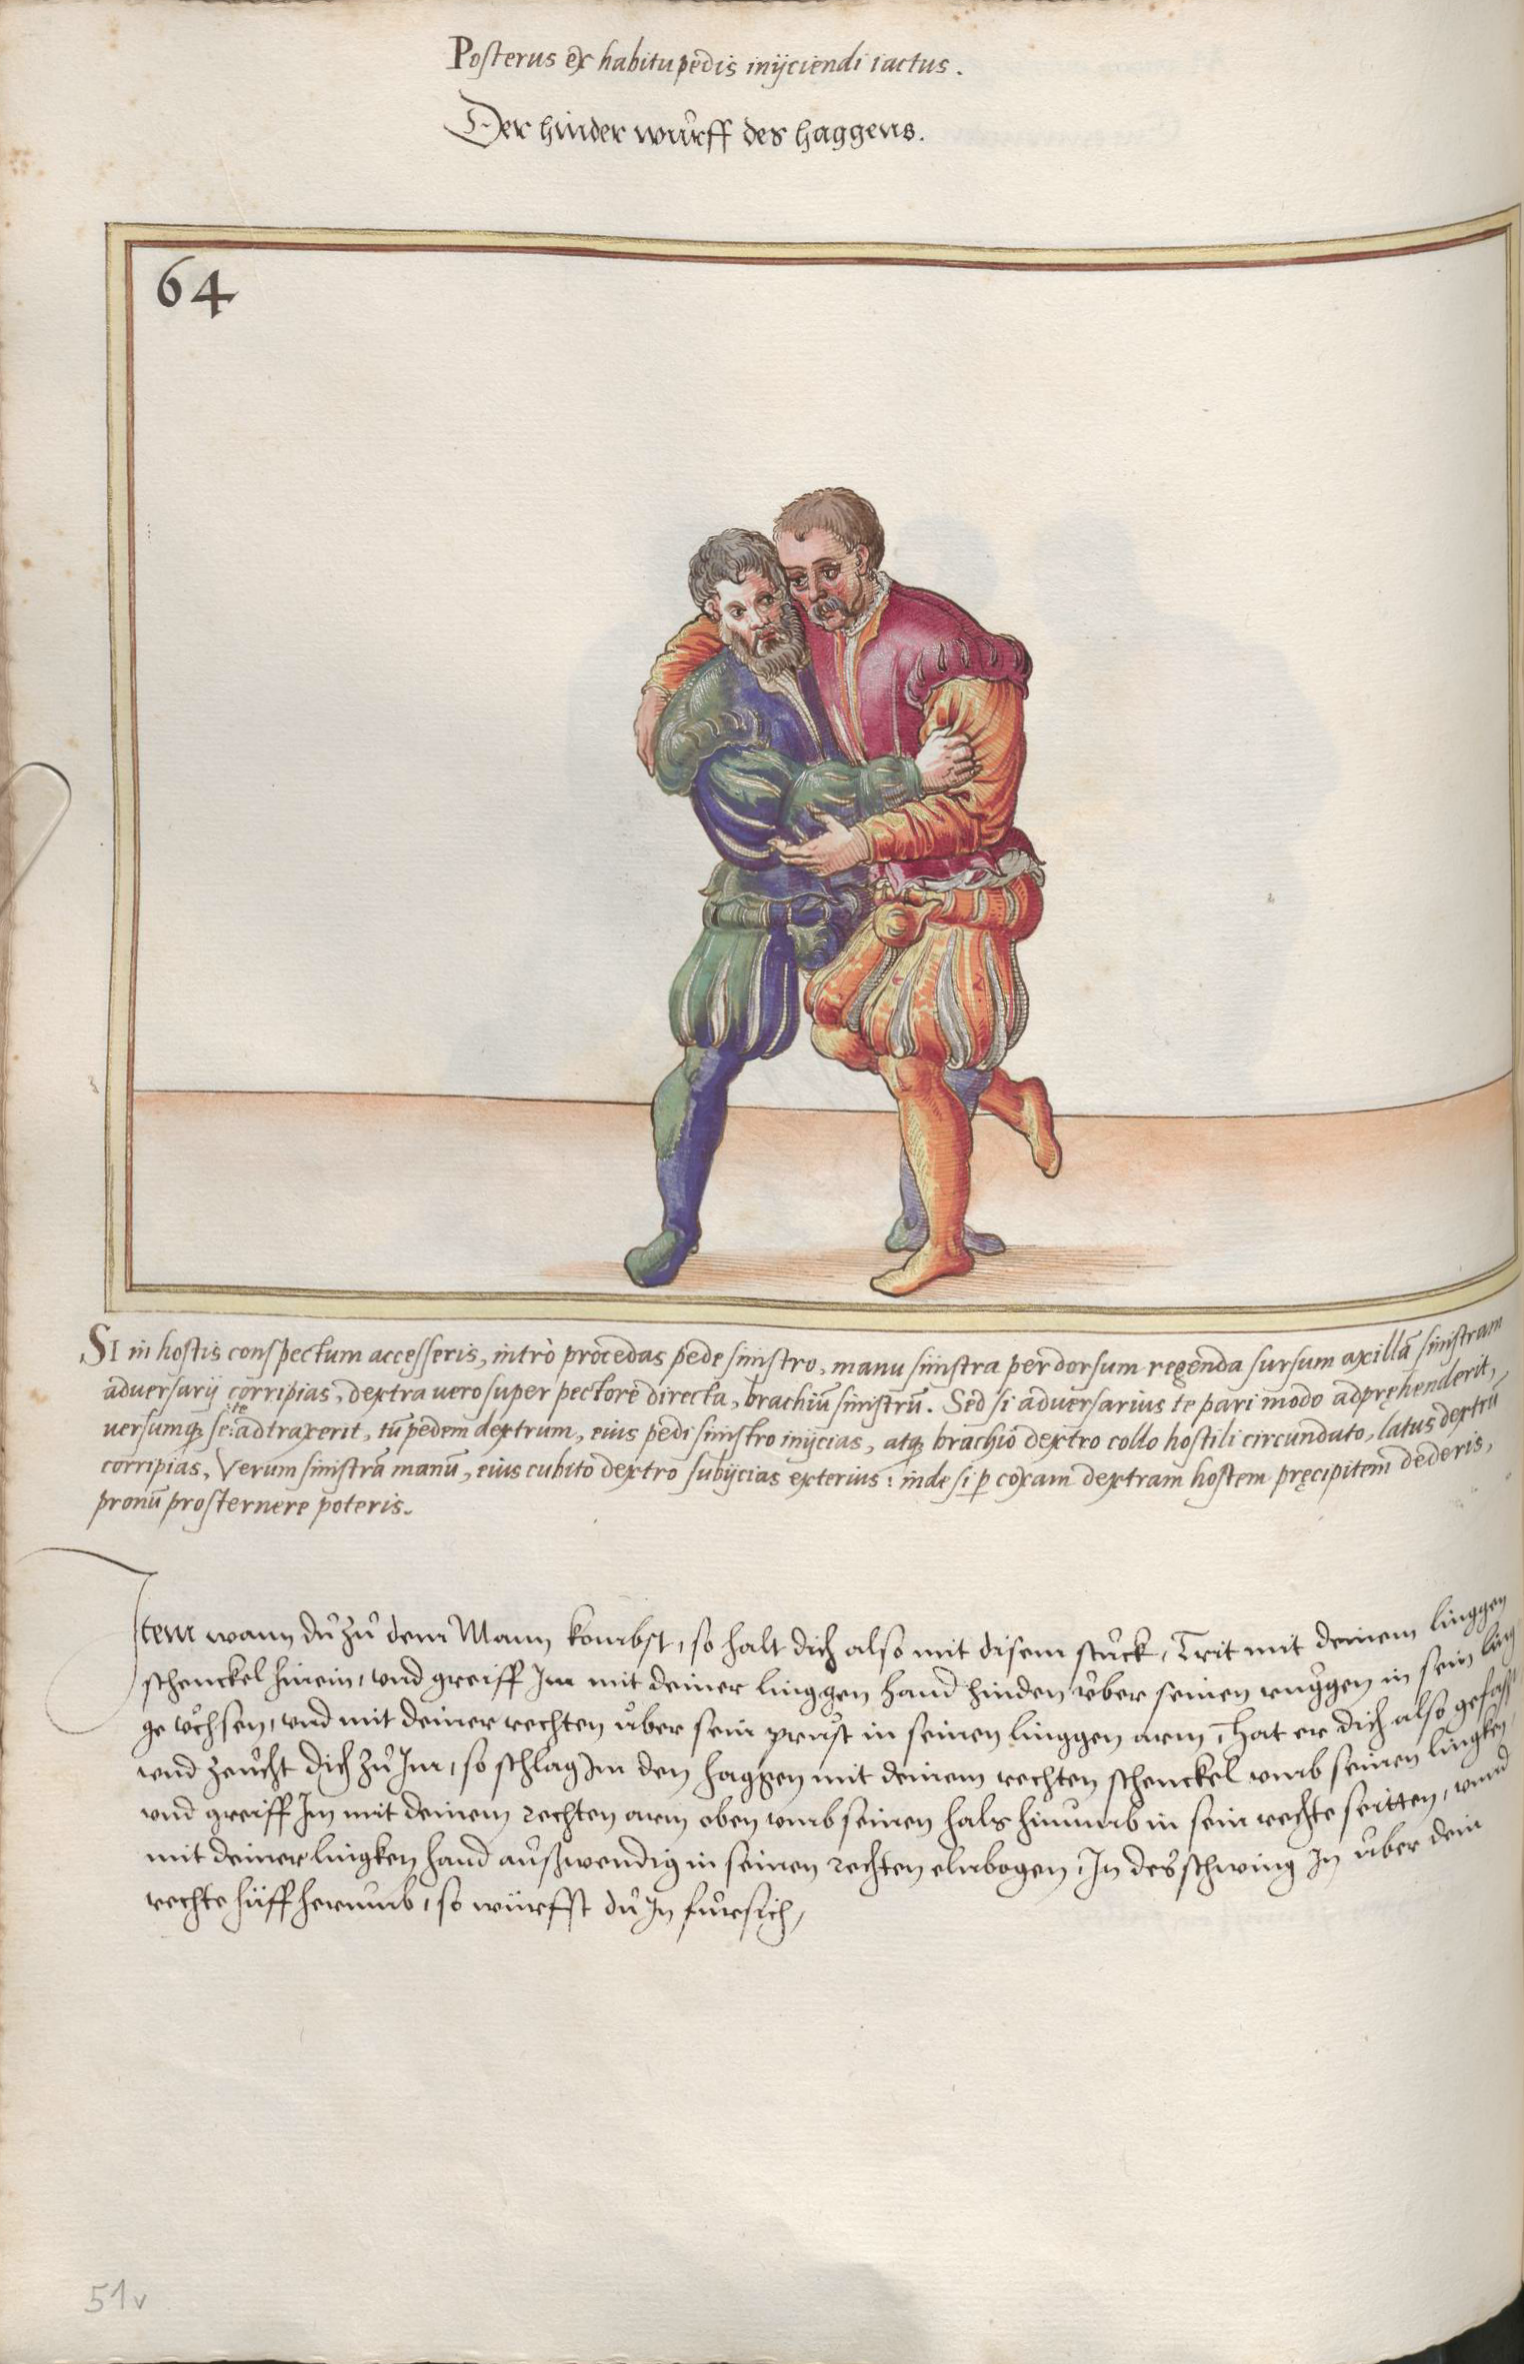 Posterus ex habitu pedis inijciendi iactus.
Der hinder wůrff des haggens.
64
SI in hostis conspectum accesseris, intrò procedas pede sinistro, manu sinistra per dorsum regenda sursum axillã sinistram
adversarij corripias, dextra vero super pectore directa, brachiũ sinistrũ. Sed si adversarius te pari modo adpręhenderit,
versumq; se te adtraxerit, tũ pedem dextrum, eius pedi sinistro inijcias, atq; brachio dextro collo hostili circundato, latus dextrũ
corripias, Verum sinistrã manũ, eius cubito dextro subijcias exterius: inde si p coxam dextram hostem pręcipitem dederis,
pronũ prosternere poteris.
Item wann dů zů dem Mann kombst, so halt dich also mit disem stuck, Trit mit deinem linggen
schenckel hinein, vnd greiff Im mit deiner linggen hand hinden vber seinen ruggen in sein ling
ge vchsen, vnd mit deiner rechten vber sein prust in seinen linggen arm, Hat er dich also gefasst
vnd zeucht dich zů Im, so schlag Im den haggen mit deinem rechten schenckel vmb seinen lingken,
vnd greiff Im mit deinem rechten arm oben vmb seinen hals hinumb in sein rechte seitten, vnnd
mit deiner lingken hand außwendig in seinen rechten elnbogen, In des schwing In vber dein
rechte hüff herumb, so würffst dů In fůrsich,
51v